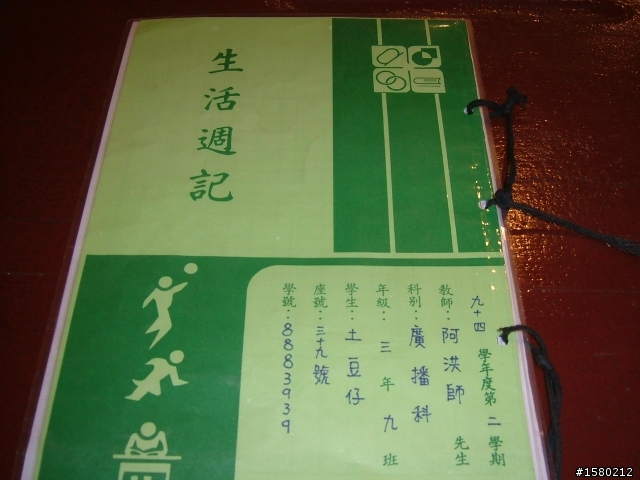 生活週記
九十四學年度第二學期
教師：阿洪師先生
科別：廣播科
年級：三年九班
學生：土豆仔
座號：三十九號
學號：8883939
#1580212